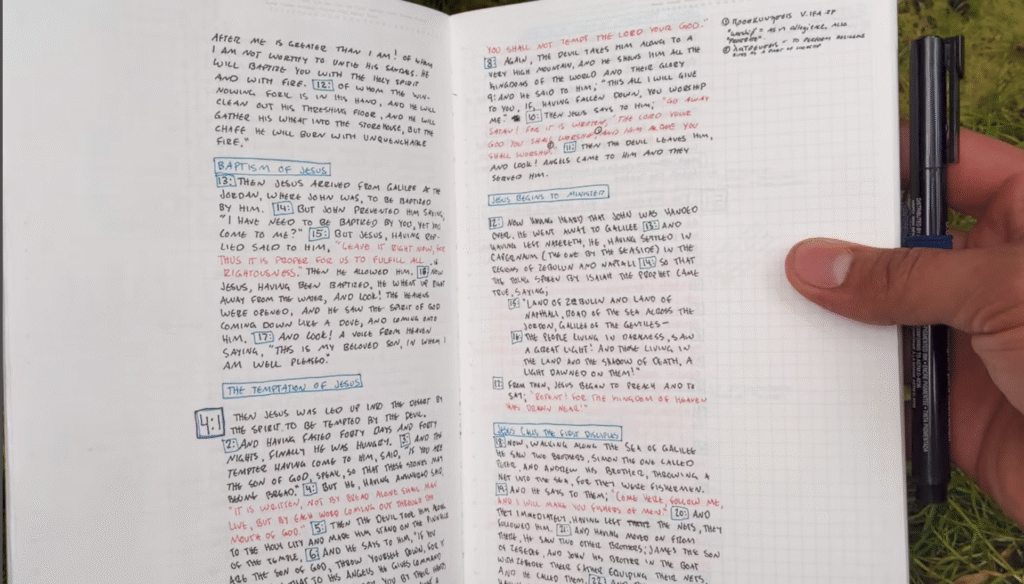 AFTER ME IS GREATER THAN I AM! OF WHOM
I AM NOT WORTHY TO UNTIE HIS SANDALS. HE
WILL BAPTIZE YOU WITH THE HOLY SPIRIT
AND WITH FIRE. 12: OF WHOM THE WIN-
NOWING FORK IS IN HIS HAND, AND HE WILL
CLEAN OUT HIS THRESHING FLOOR, AND HE WILL
GATHER HIS WHEAT INTO THE STOREHOUSE, BUT THE
CHAFF HE WILL BURN WITH UNQUENCHABLE
FIRE."
BAPTISM OF JESUS
13: THEN JESUS ARRIVED FROM GALILEE AT THE
JORDAN, WHERE JOHN WAS, TO BE BAPTIZED
BY HIM. 14: BUT JOHN PREVENTED HIM SAYING,
"I HAVE NEED TO BE BAPTIZED BY YOU, YET YOU
COME TO ME?" 15: BUT JESUS, HAVING REP-
LIED SAID TO HIM, "LEAVE IT RIGHT NOW, FOR
THUS IT IS PROPER FOR US TO FULFILL ALL
RIGHTOUSNESS." THEN HE ALLOWED HIM. 16: NOW
JESUS, HAVING BEEN BAPTIZED, HE WHENT UP RIGHT
AWAY FROM THE WATER, AND LOOK! THE HEAVENS
WERE OPENED, AND HE SAW THE SPIRIT OF GOD
COMING DOWN LIKE A DOVE, AND COMING ONTO
HIM. 17: AND LOOK! A VOICE FROM HEAVEN
SAYING, "THIS IS MY BELOVED SON, IN WHOM I
AM WELL PLEASED."
THE TEMPTATION OF JESUS
4:1 THEN JESUS WAS LED UP INTO THE DESERT BY
THE SPIRIT, TO BE TEMPTED BY THE DEVIL.
2: AND HAVING FASTED FORTY DAYS AND FORTY
NIGHTS, FINALLY HE WAS HUNGRY. 3: AND THE
TEMPTER HAVING COME TO HIM, SAID, "IF YOU ARE
THE SON OF GOD, SPEAK, SO THAT THESE STONES MAY
BECOME BREAD." 4: BUT HE, HAVING ANSWERED SAID,
"IT IS WRITTEN, NOT BY BREAD ALONE SHALL MAN
LIVE, BUT BY EACH WORD COMING OUT THROUGH THE
MOUTH OF GOD." 5: THEN THE DEVIL TOOK HIM ALONG
TO THE HOLY CITY AND MADE HIM STAND ON THE PINNACLE
OF THE TEMPLE, 6: AND HE SAYS TO HIM, "IF YOU
ARE THE SON OF GOD, THROW YOURSELF DOWN, FOR IT
THAT TO HIS ANGELS HE GIVES COMMAND
YOU BY THEIR HANDS
YOU SHALL NOT TEMPT THE LORD YOUR GOD."
8: AGAIN, THE DEVIL TAKES HIM ALONG TO A
VERY HIGH MOUNTAIN, AND HE SHOWS HIM ALL THE
KINGDOMS OF THE WORLD AND THEIR GLORY
9: AND HE SAID TO HIM; "THIS ALL I WILL GIVE
TO YOU, IF, HAVING FALLEN DOWN, YOU WORSHIP
ME." 10: THEN JESUS SAYS TO HIM; "GO AWAY
SATAN! FOR IT IS WRITTEN, "THE LORD YOUR
GOD YOU SHALL WORSHIP, AND HIM ALONE YOU
SHALL WORSHIP." 11: THEN THE DEVIL LEAVES HIM,
AND LOOK! ANGELS CAME TO HIM AND THEY
SERVED HIM.
JESUS BEGINS TO MINISTER
12: NOW HAVING HEARD THAT JOHN WAS HANDED
OVER, HE WENT AWAY TO GALILEE 13: AND
HAVING LEFT NAZERETH, HE, HAVING SETTLED IN
CAPERNAUM (THE ONE BY THE SEASIDE) IN THE
REGIONS OF ZEBULUN AND NAFTALI 14: SO THAT
THE THING SPOKEN BY ISAIAH THE PROPHET CAME
TRUE, SAYING,
15: "LAND OF ZEBULUN AND LAND OF
NAPHTALI, ROAD OF THE SEA ACROSS THE
JORDAN, GALILEE OF THE GENTILES—
16: THE PEOPLE LIVING IN DARKNESS, SAW
A GREAT LIGHT! AND THOSE LIVING IN
THE LAND AND THE SHADOW OF DEATH, A
LIGHT DAWNED ON THEM!"
17: FROM THEN, JESUS BEGAN TO PREACH AND TO
SAY; "REPENT! FOR THE KINGDOM OF HEAVEN
HAS DRAWN NEAR!"
JESUS CALLS THE FIRST DISCIPLES
18: NOW, WALKING ALONG THE SEA OF GALILEE
HE SAW TWO BROTHERS, SIMON THE ONE CALLED
PETER, AND ANDREW HIS BROTHER, THROWING A
NET INTO THE SEA, FOR THEY WERE FISHERMEN.
19: AND HE SAYS TO THEM; "COME HERE, FOLLOW ME,
AND I WILL MAKE YOU FISHERS OF MEN." 20: AND
THEY IMMEDIATELY, HAVING LEFT THE NETS, THEY
FOLLOWED HIM. 21: AND HAVING MOVED ON FROM
THERE, HE SAW TWO OTHER BROTHERS; JAMES THE SON
OF ZEBEDEE, AND JOHN HIS BROTHER IN THE BOAT
WITH ZEBEDEE THEIR FATHER EQUIPING THEIR NETS,
AND HE CALLED THEM. 22: AND